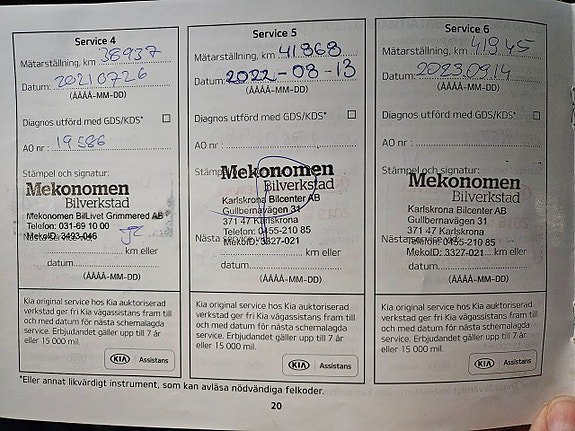 Service 4
Mätarställning, km 38937
Datum: 20210726
(ÅÅÅÅ-MM-DD)
Diagnos utförd med GDS/KDS*
AO nr : 19586
Stämpel och signatur:
Mekonomen
Bilverkstad
Mekonomen BilLivet Grimmered AB
Telefon: 031-69 10 00
MekoID: 3493-046
km eller
datum
(ÅÅÅÅ-MM-DD)
Kia original service hos Kia auktoriserad
verkstad ger fri Kia vägassistans fram till
och med datum för nästa schemalagda
service. Erbjudandet gäller upp till 7 år
eller 15 000 mil.
KIA Assistans
Service 5
Mätarställning, km 41868
Datum: 2022-08-13
(ÅÅÅÅ-MM-DD)
Diagnos utförd med GDS/KDS*
AO nr :
Stämpel
Mekonomen
Bilverkstad
Karlskrona Bilcenter AB
Gullbernavägen 31
371 47 Karlskrona
Telefon: 0455-210 85
Nästa service
MekoID: 3327-021
km eller
datum
(ÅÅÅÅ-MM-DD)
Kia original service hos Kia auktoriserad
verkstad ger fri Kia vägassistans fram till
och med datum för nästa schemalagda
service. Erbjudandet gäller upp till 7 år
eller 15 000 mil.
KIA Assistans
Service 6
Mätarställning, km 41945
Datum: 2023.09.14
(ÅÅÅÅ-MM-DD)
Diagnos utförd med GDS/KDS*
AO nr :
Mekonomen
Bilverkstad
Karlskrona Bilcenter AB
Gullbernavägen 31
371 47 Karlskrona
Telefon: 0455-210 85
MekoID: 3327-021
km eller
datum
(ÅÅÅÅ-MM-DD)
Kia original service hos Kia auktoriserad
verkstad ger fri Kia vägassistans fram till
och med datum för nästa schemalagda
service. Erbjudandet gäller upp till 7 år
eller 15 000 mil.
KIA Assistans
*Eller annat likvärdigt instrument, som kan avläsa nödvändiga felkoder.
20